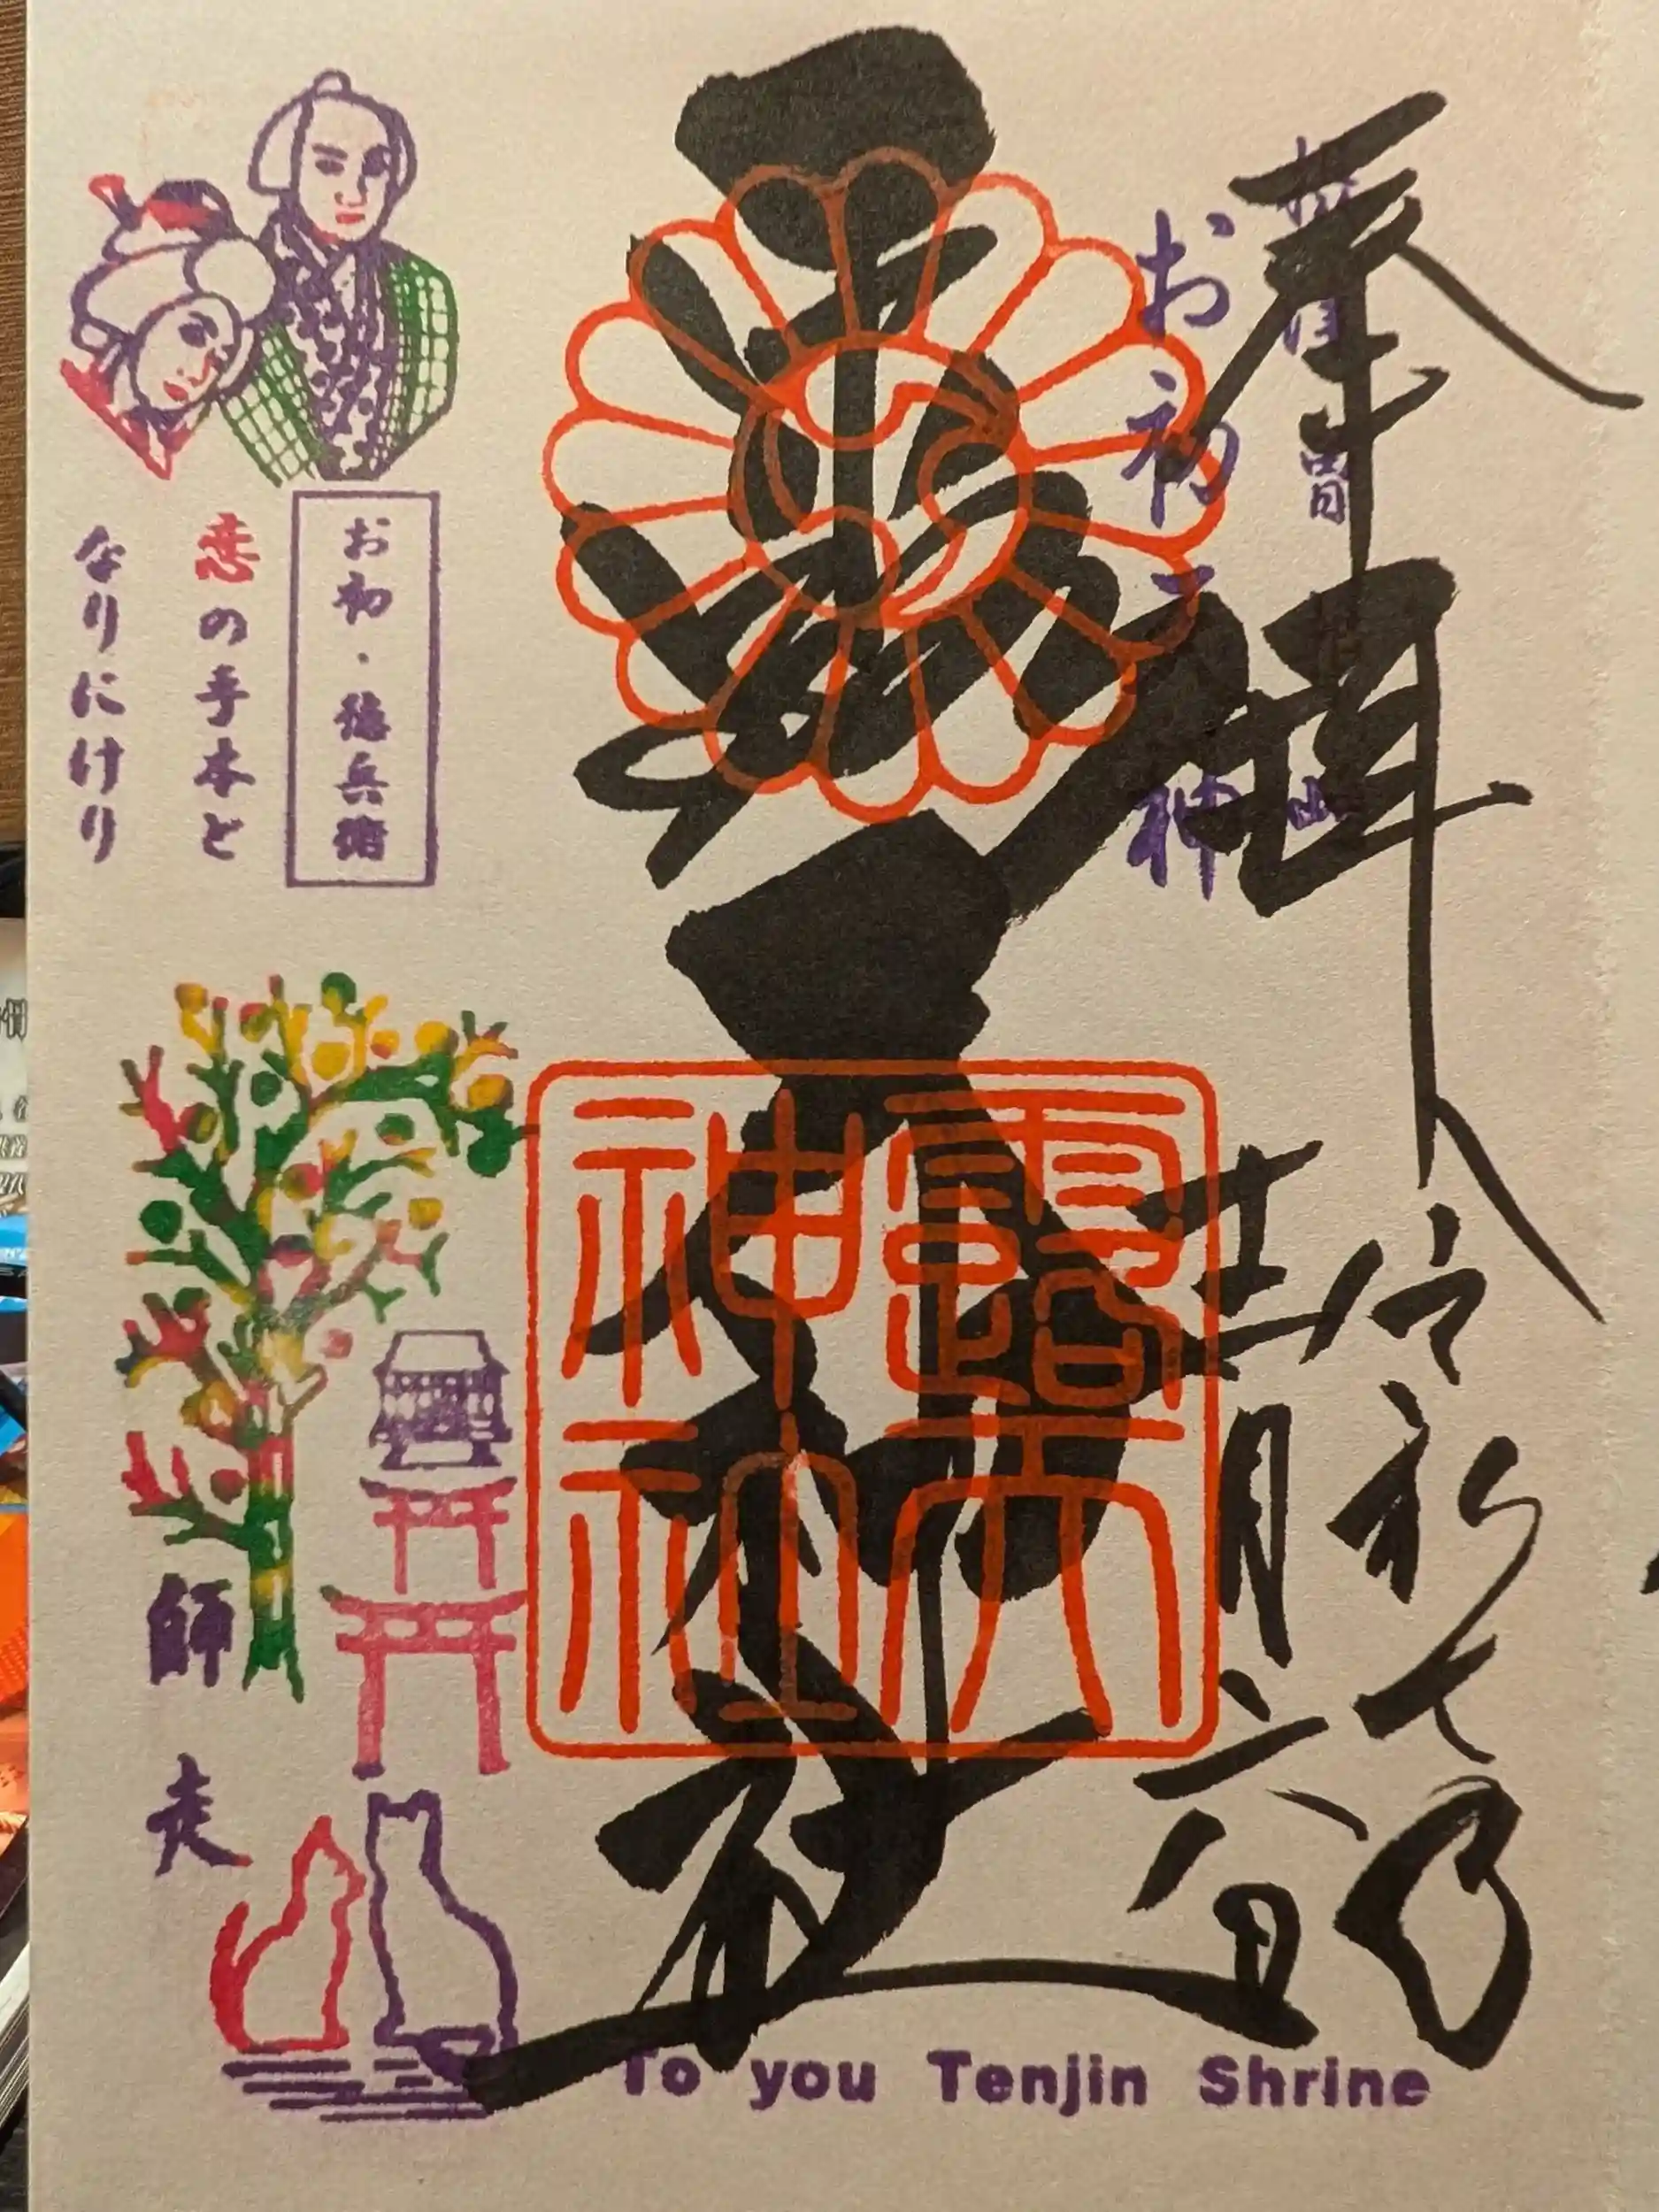 奉拝
お初天神
令和七年
十二月六日
露天神社
露天
神社
お初・徳兵衛
恋の手本と
なりにけり
師走
To you Tenjin Shrine